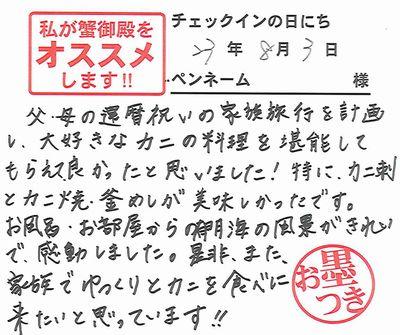 私が蟹御殿を
オススメ
します!!
チェックインの日にち
23年8月3日
ペンネーム 様
父・母の還暦祝いの家族旅行を計画
し、大好きなカニの料理を堪能して
もらえて良かったと思いました!特に、カニ刺
とカニ焼・釜めしが美味しかったです。
お風呂・お部屋からの有明海の風景がきれい
で、感動しました。是非、また、
家族でゆっくりとカニを食べに
来たいと思っています!!
お墨つき